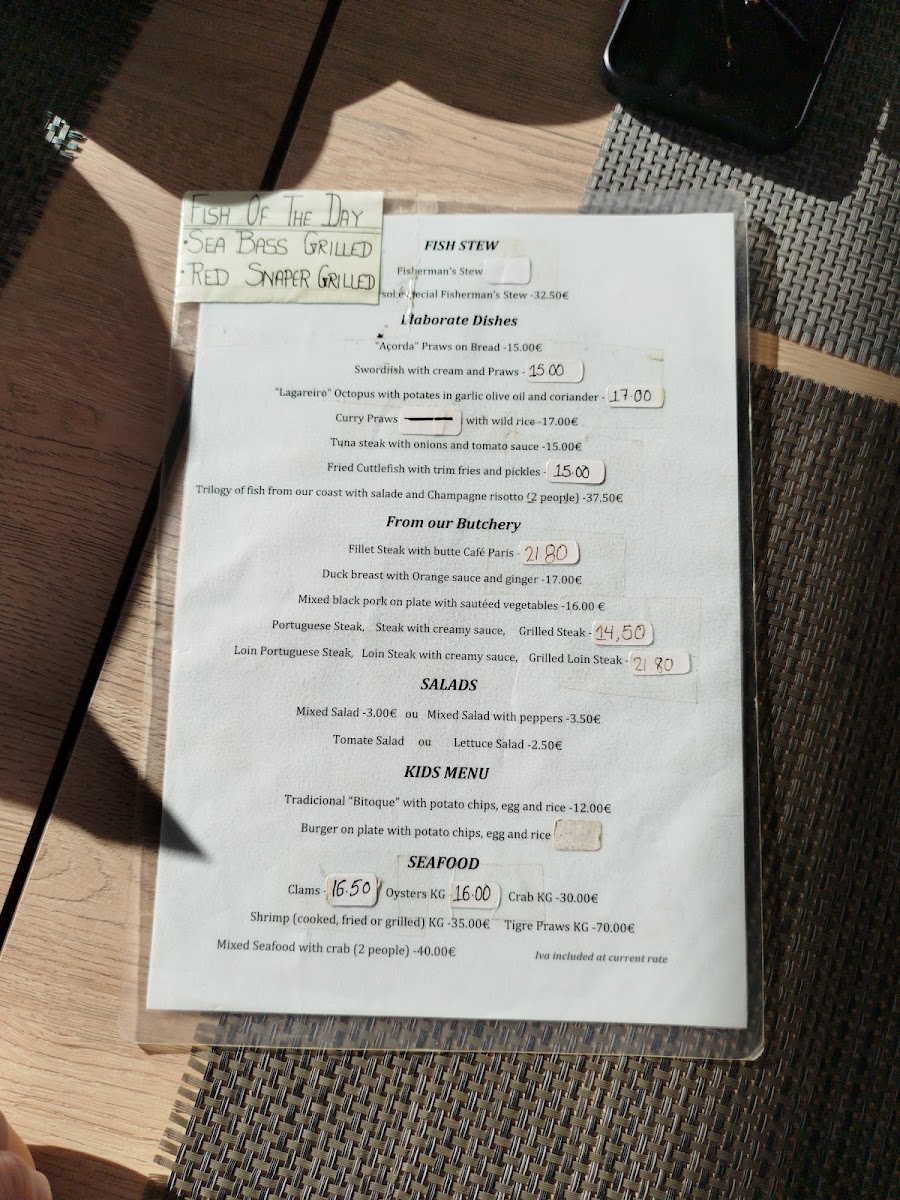 FISH OF THE DAY
• SEA BASS GRILLED
• RED SNAPER GRILLED
FISH STEW
Fisherman's Stew
Fisherman's Stew -32.50€
Elaborate Dishes
"Açorda" Praws on Bread -15.00€
Swordfish with cream and Praws - 15.00
"Lagareiro" Octopus with potates in garlic olive oil and coriander - 17.00
Curry Praws with wild rice -17.00€
Tuna steak with onions and tomato sauce -15.00€
Fried Cuttlefish with trim fries and pickles - 15.00
Trilogy of fish from our coast with salade and Champagne risotto (2 people) -37.50€
From our Butchery
Fillet Steak with butte Café Paris - 21.80
Duck breast with Orange sauce and ginger -17.00€
Mixed black pork on plate with sautéed vegetables -16.00 €
Portuguese Steak, Steak with creamy sauce, Grilled Steak - 14,50
Loin Portuguese Steak, Loin Steak with creamy sauce, Grilled Loin Steak - 21.80
SALADS
Mixed Salad -3.00€ ou Mixed Salad with peppers -3.50€
Tomate Salad ou Lettuce Salad -2.50€
KIDS MENU
Tradicional "Bitoque" with potato chips, egg and rice -12.00€
Burger on plate with potato chips, egg and rice
SEAFOOD
Clams - 16.50 / Oysters KG 16.00 Crab KG -30.00€
Shrimp (cooked, fried or grilled) KG -35.00€ Tigre Praws KG -70.00€
Mixed Seafood with crab (2 people) -40.00€
Iva included at current rate